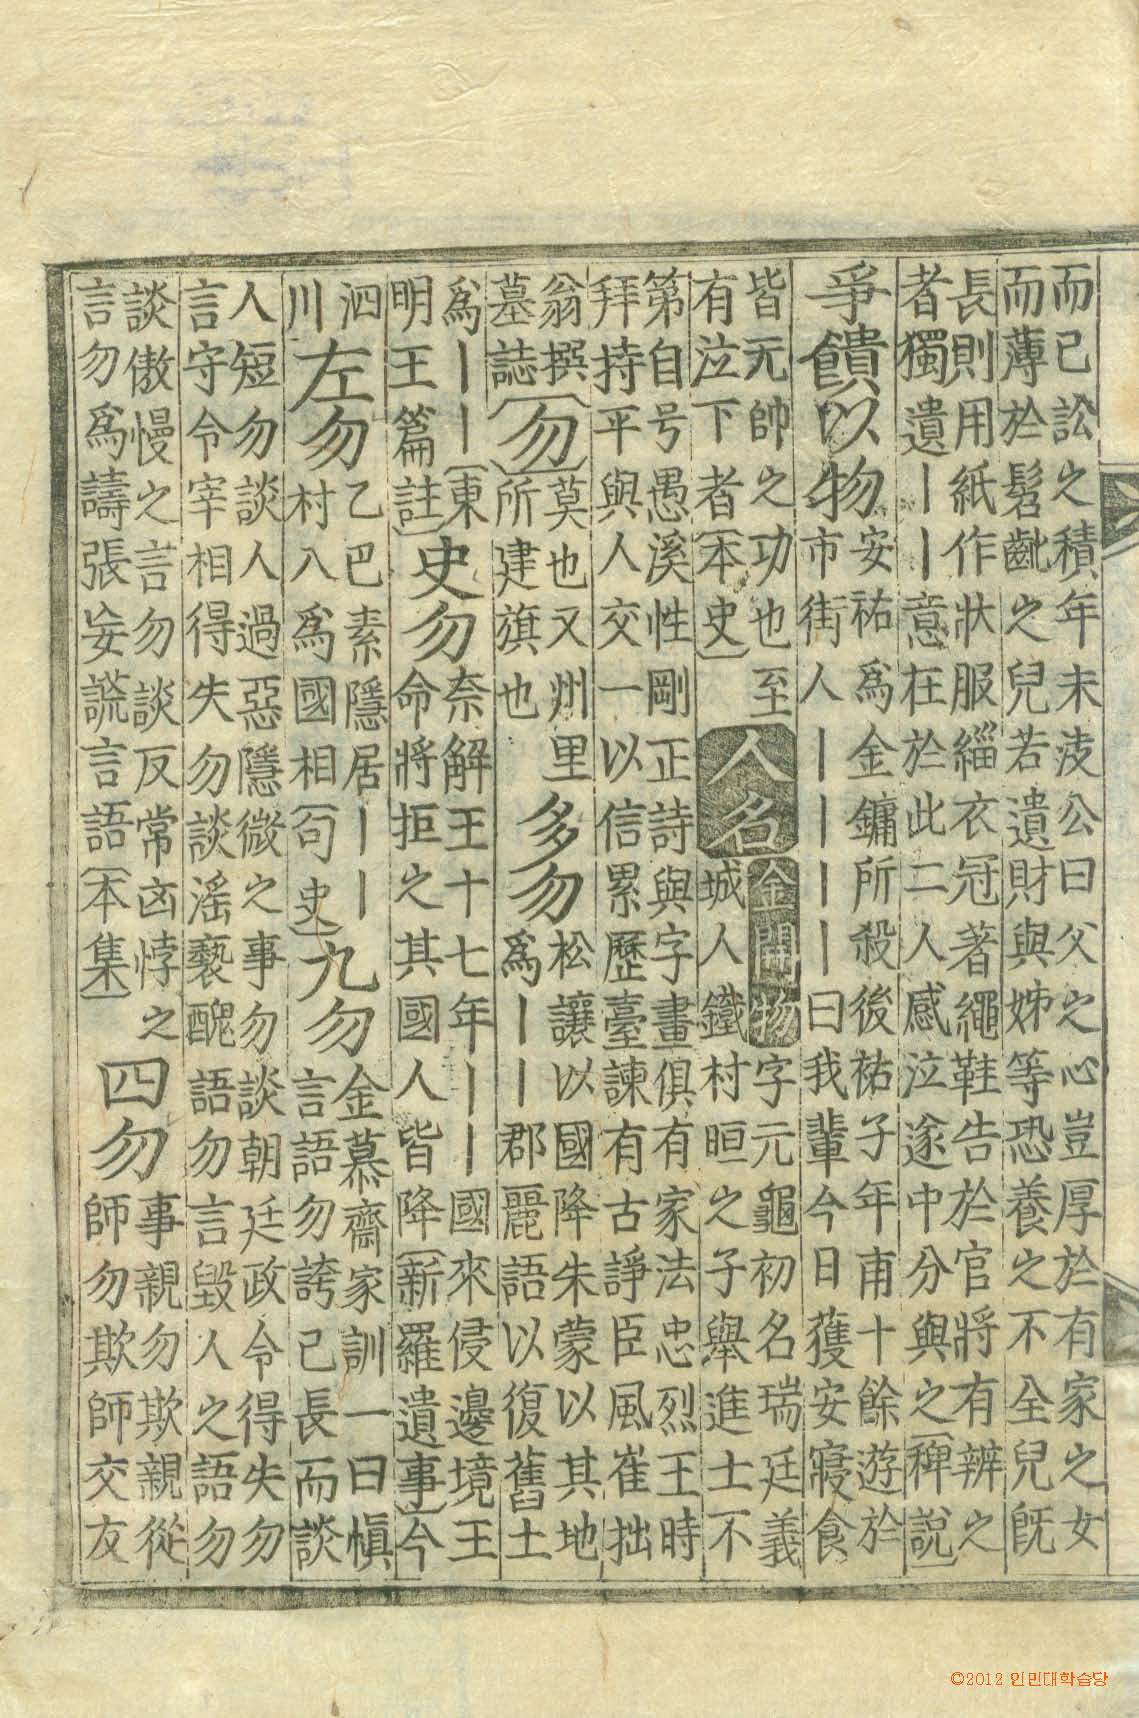 而已訟之積年未决公曰父之心豈厚於有家之女
而薄於髫齔之兒若遺財與姊等恐養之不全兒旣
長則用紙作狀服緇衣冠著繩鞋告於官將有辨之
者獨遺丨丨意在於此二人感泣遂中分與之(稗說)
爭饋以物
安祐爲金鏞所殺後祐子年甫十餘游於
市街人丨丨丨丨曰我輩今日獲安寢食
皆元帥之功也至
有泣下者(本史)
人名
金開物
字元龜初名瑞廷義
城人鐵村晅之子舉進士不
第自号愚溪性剛正詩與字畫俱有家法忠烈王時
拜持平與人交一以信累歷臺諫有古諍臣風崔拙
翁撰
墓誌
(勿)
莫也又州里
所建旗也
多勿
松讓以國降朱蒙以其地
爲丨丨郡麗語以復舊土
爲丨丨(東
明王篇註)
史勿
奈解王十七年丨丨國來侵邊境王
命將拒之其國人皆降(新羅遺事)今
泗
川
左勿
乙巴素隱居丨丨
村八爲國相(句史)
九勿
金慕齋家訓一曰愼
言語勿誇己長而談
人短勿談人過惡隱微之事勿談朝廷政令得失勿
言守令宰相得失勿談滛褻醜語勿言毀人之語勿
談傲慢之言勿談反常凶悖之
言勿爲譸張妄謊言語(本集)
四勿
事親勿欺親從
師勿欺師交友
©2012 인민대학습당